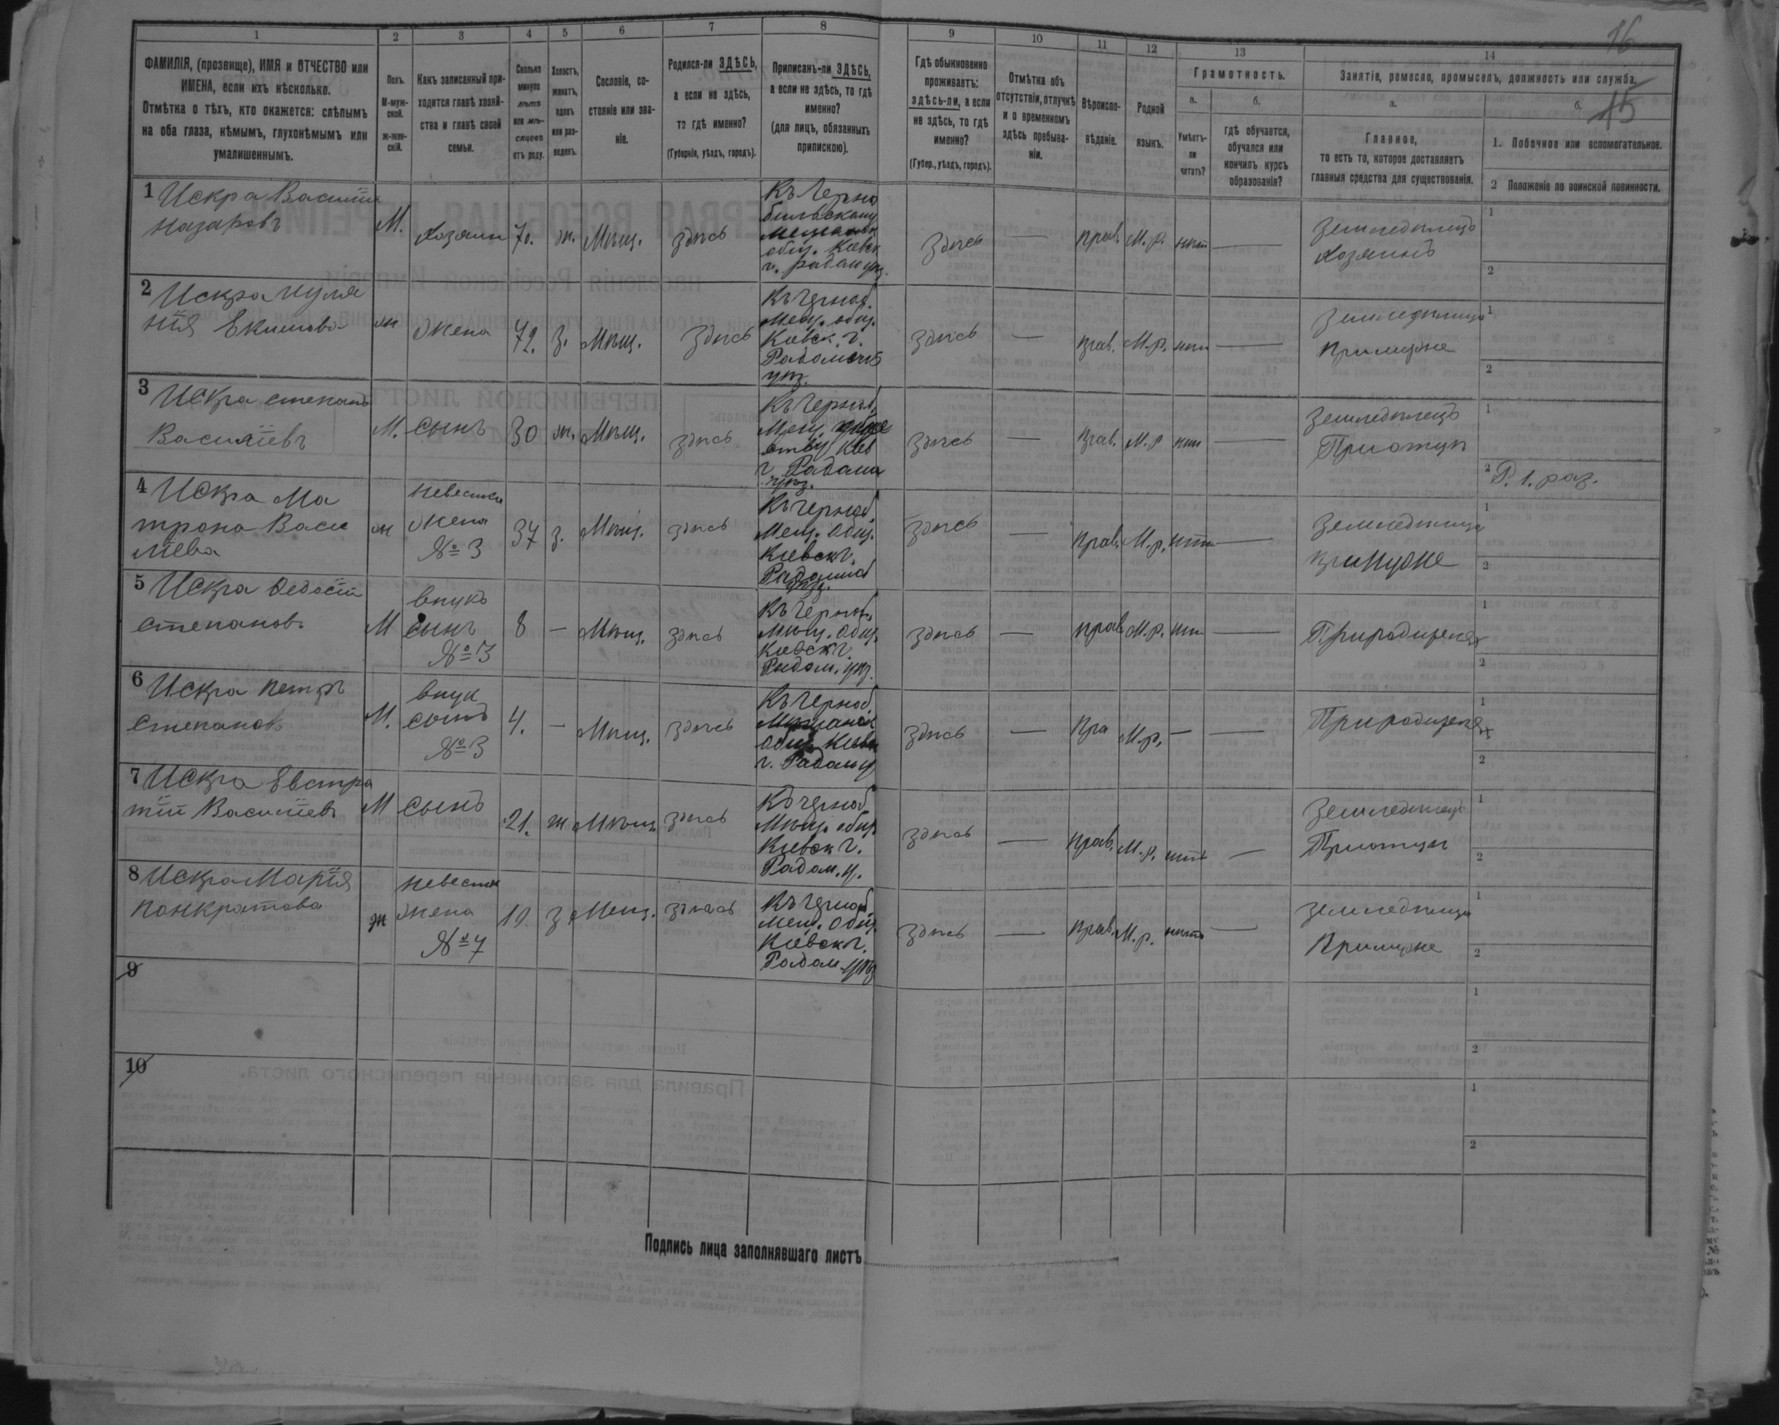 16
15
1
2
3
4
5
6
7
8
9
10
11
12
13
14
ФАМИЛІЯ, (прозвище), ИМЯ и ОТЧЕСТВО или
ИМЕНА, если ихъ нѣсколько.
Отмѣтка о тѣхъ, кто окажется: слѣпымъ
на оба глаза, нѣмымъ, глухонѣмымъ или
умалишеннымъ.
Полъ.
М-муж-
ской.
ж-жен-
скій.
Какъ записанный при-
ходится главѣ хозяй-
ства и главѣ своей
семьи.
Сколько
минуло
лѣтъ
или мѣ-
сяцевъ
отъ роду.
Холостъ,
женатъ,
вдовъ
или раз-
веденъ.
Сословіе, со-
стояніе или зва-
ніе.
Родился-ли ЗДѢСЬ,
а если не здѣсь,
то гдѣ именно?
(Губернія, уѣздъ, городъ).
Приписанъ-ли ЗДѢСЬ,
а если не здѣсь, то гдѣ
именно?
(для лицъ, обязанныхъ
припискою).
Гдѣ обыкновенно
проживаетъ:
здѣсь-ли, а если
не здѣсь, то гдѣ
именно?
(Губер., уѣздъ, городъ).
Отмѣтка объ
отсутствіи, отлучкѣ
и о временномъ
здѣсь пребыва-
ніи.
Вѣроиспо-
вѣданіе.
Родной
языкъ.
Грамотность.
а.
б.
Умѣетъ-
ли
читать?
гдѣ обучается,
обучался или
кончилъ курсъ
образованія?
Занятіе, ремесло, промыселъ, должность или служба.
а.
б.
Главное,
то есть то, которое доставляетъ
главныя средства для существованія.
1. Побочное или вспомогательное.
2 Положеніе по воинской повинности.
1 Искра Василій
Назаровъ
М.
Хозяинъ
70.
ж.
Мѣщ.
здѣсь
Къ Черно
быльскому
общ. Кіевск
здѣсь
—
прав.
М.р.
нѣт
—
Земледѣлецъ
Хозяинъ
1
2
2 Искра
нія Екимова
ж
Жена
72.
з.
Мѣщ.
Здѣсь
Къ Черноб.
Мещ. общ.
Кіевск. г.
уѣз.
здѣсь
—
прав.
М.р.
нѣт
—
Земледѣлица
При муже
1
2
3 Искра Степанъ
Василіевъ
М.
Сынъ
30
ж.
Мѣщ.
здѣсь
Къ Черноб.
Мещ.
уѣз.
здѣсь
—
прав.
М.р
нѣт
—
Земледѣлецъ
При отцѣ
1
2 Р. 1. раз.
4 Искра Ма
трона Васи
ліева
ж
невестка
Жена
№ 3
37
з.
Мѣщ.
здѣсь
Къ Черноб.
Мещ. Общ.
Кіевск г.
уѣз.
здѣсь
—
прав.
М.р.
нѣт
—
Земледѣлица
при муже
1
2
5 Искра Федосій
Степанов.
М
внукъ
сынъ
№ 3
8
—
Мѣщ.
здѣсь
Къ Черноб.
Мѣщ. Общ.
Кіевск г.
Радом. уѣз.
здѣсь
—
прав.
М.р.
нѣт
—
При родителях
1
2
6 Искра Петръ
Степанов.
М.
внук
сынъ
№ 3
4.
—
Мѣщ.
здѣсь
Къ Черноб.
здѣсь
—
Пра
М.р.
—
—
При родителях
1
2
7 Искра Евстра
тій Василіев.
М
сынъ
21.
ж
Мѣщ
здѣсь
Къ Черноб.
Мѣщ. общ.
Кіевск г.
Радом. у.
здѣсь
—
прав.
М.р.
нѣт
—
Земледѣлецъ
При отцы
1
2
8 Искра Марія
Понкратова
ж
невестка
Жена
№ 7
19.
з
Мещ.
здѣсь
Къ Черноб
Мещ. Общ.
Кіевск г.
Радом. уѣз
здѣсь
—
прав.
М.р.
нѣт
—
Земледѣлица
При муже
1
2
9
1
2
10
1
2
Подпись лица заполнявшаго листъ